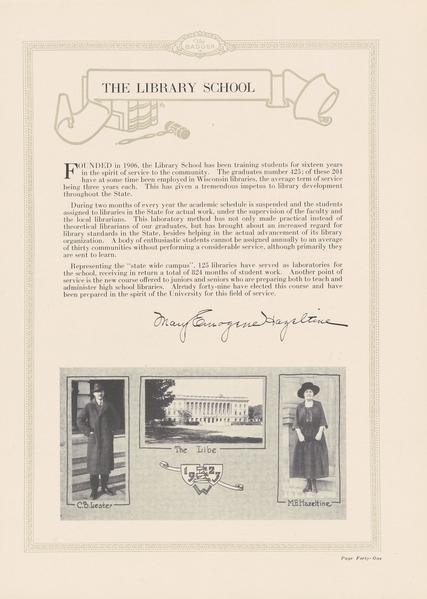 The
BADGER
THE LIBRARY SCHOOL
FOUNDED in 1906, the Library School has been training students for sixteen years
in the spirit of service to the community. The graduates number 425; of these 204
have at some time been employed in Wisconsin libraries, the average term of service
being three years each. This has given a tremendous impetus to library development
throughout the State.
During two months of every year the academic schedule is suspended and the students
assigned to libraries in the State for actual work, under the supervision of the faculty and
the local librarians. This laboratory method has not only made practical instead of
theoretical librarians of our graduates, but has brought about an increased regard for
library standards in the State, besides helping in the actual advancement of its library
organization. A body of enthusiastic students cannot be assigned annually to an average
of thirty communities without performing a considerable service, although primarily they
are sent to learn.
Representing the "state wide campus", 125 libraries have served as laboratories for
the school, receiving in return a total of 824 months of student work. Another point of
service is the new course offered to juniors and seniors who are preparing both to teach and
administer high school libraries. Already forty-nine have elected this course and have
been prepared in the spirit of the University for this field of service.
Mary Emogene Hazeltine
The Libe
1923
W
C.B. Lester
M.E. Hazeltine
Page Forty-One